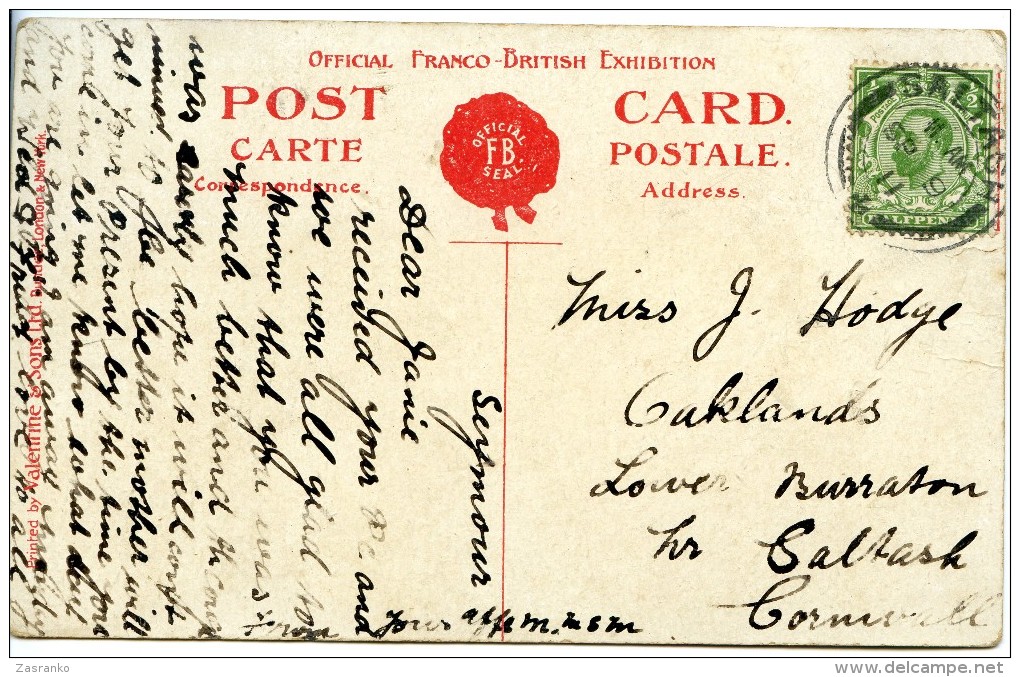 OFFICIAL FRANCO-BRITISH EXHIBITION
POST CARD.
CARTE POSTALE.
Correspondence. Address.
OFFICIAL
F.B.
SEAL
HALFPENNY
Miss J. Hodge
Oaklands
Lower Burraton
Nr Saltash
Cornwall
Seymour
Dear Janie
received your P.C and
we were all glad to
know that you was
much better and
was hope it will
mines to the better mother will
get your Present by the time you
come in let me know what
you are going
and
from your aff
Printed by Valentine & Sons Ltd. Dundee, London & New York
Zasranko
delcampe.net